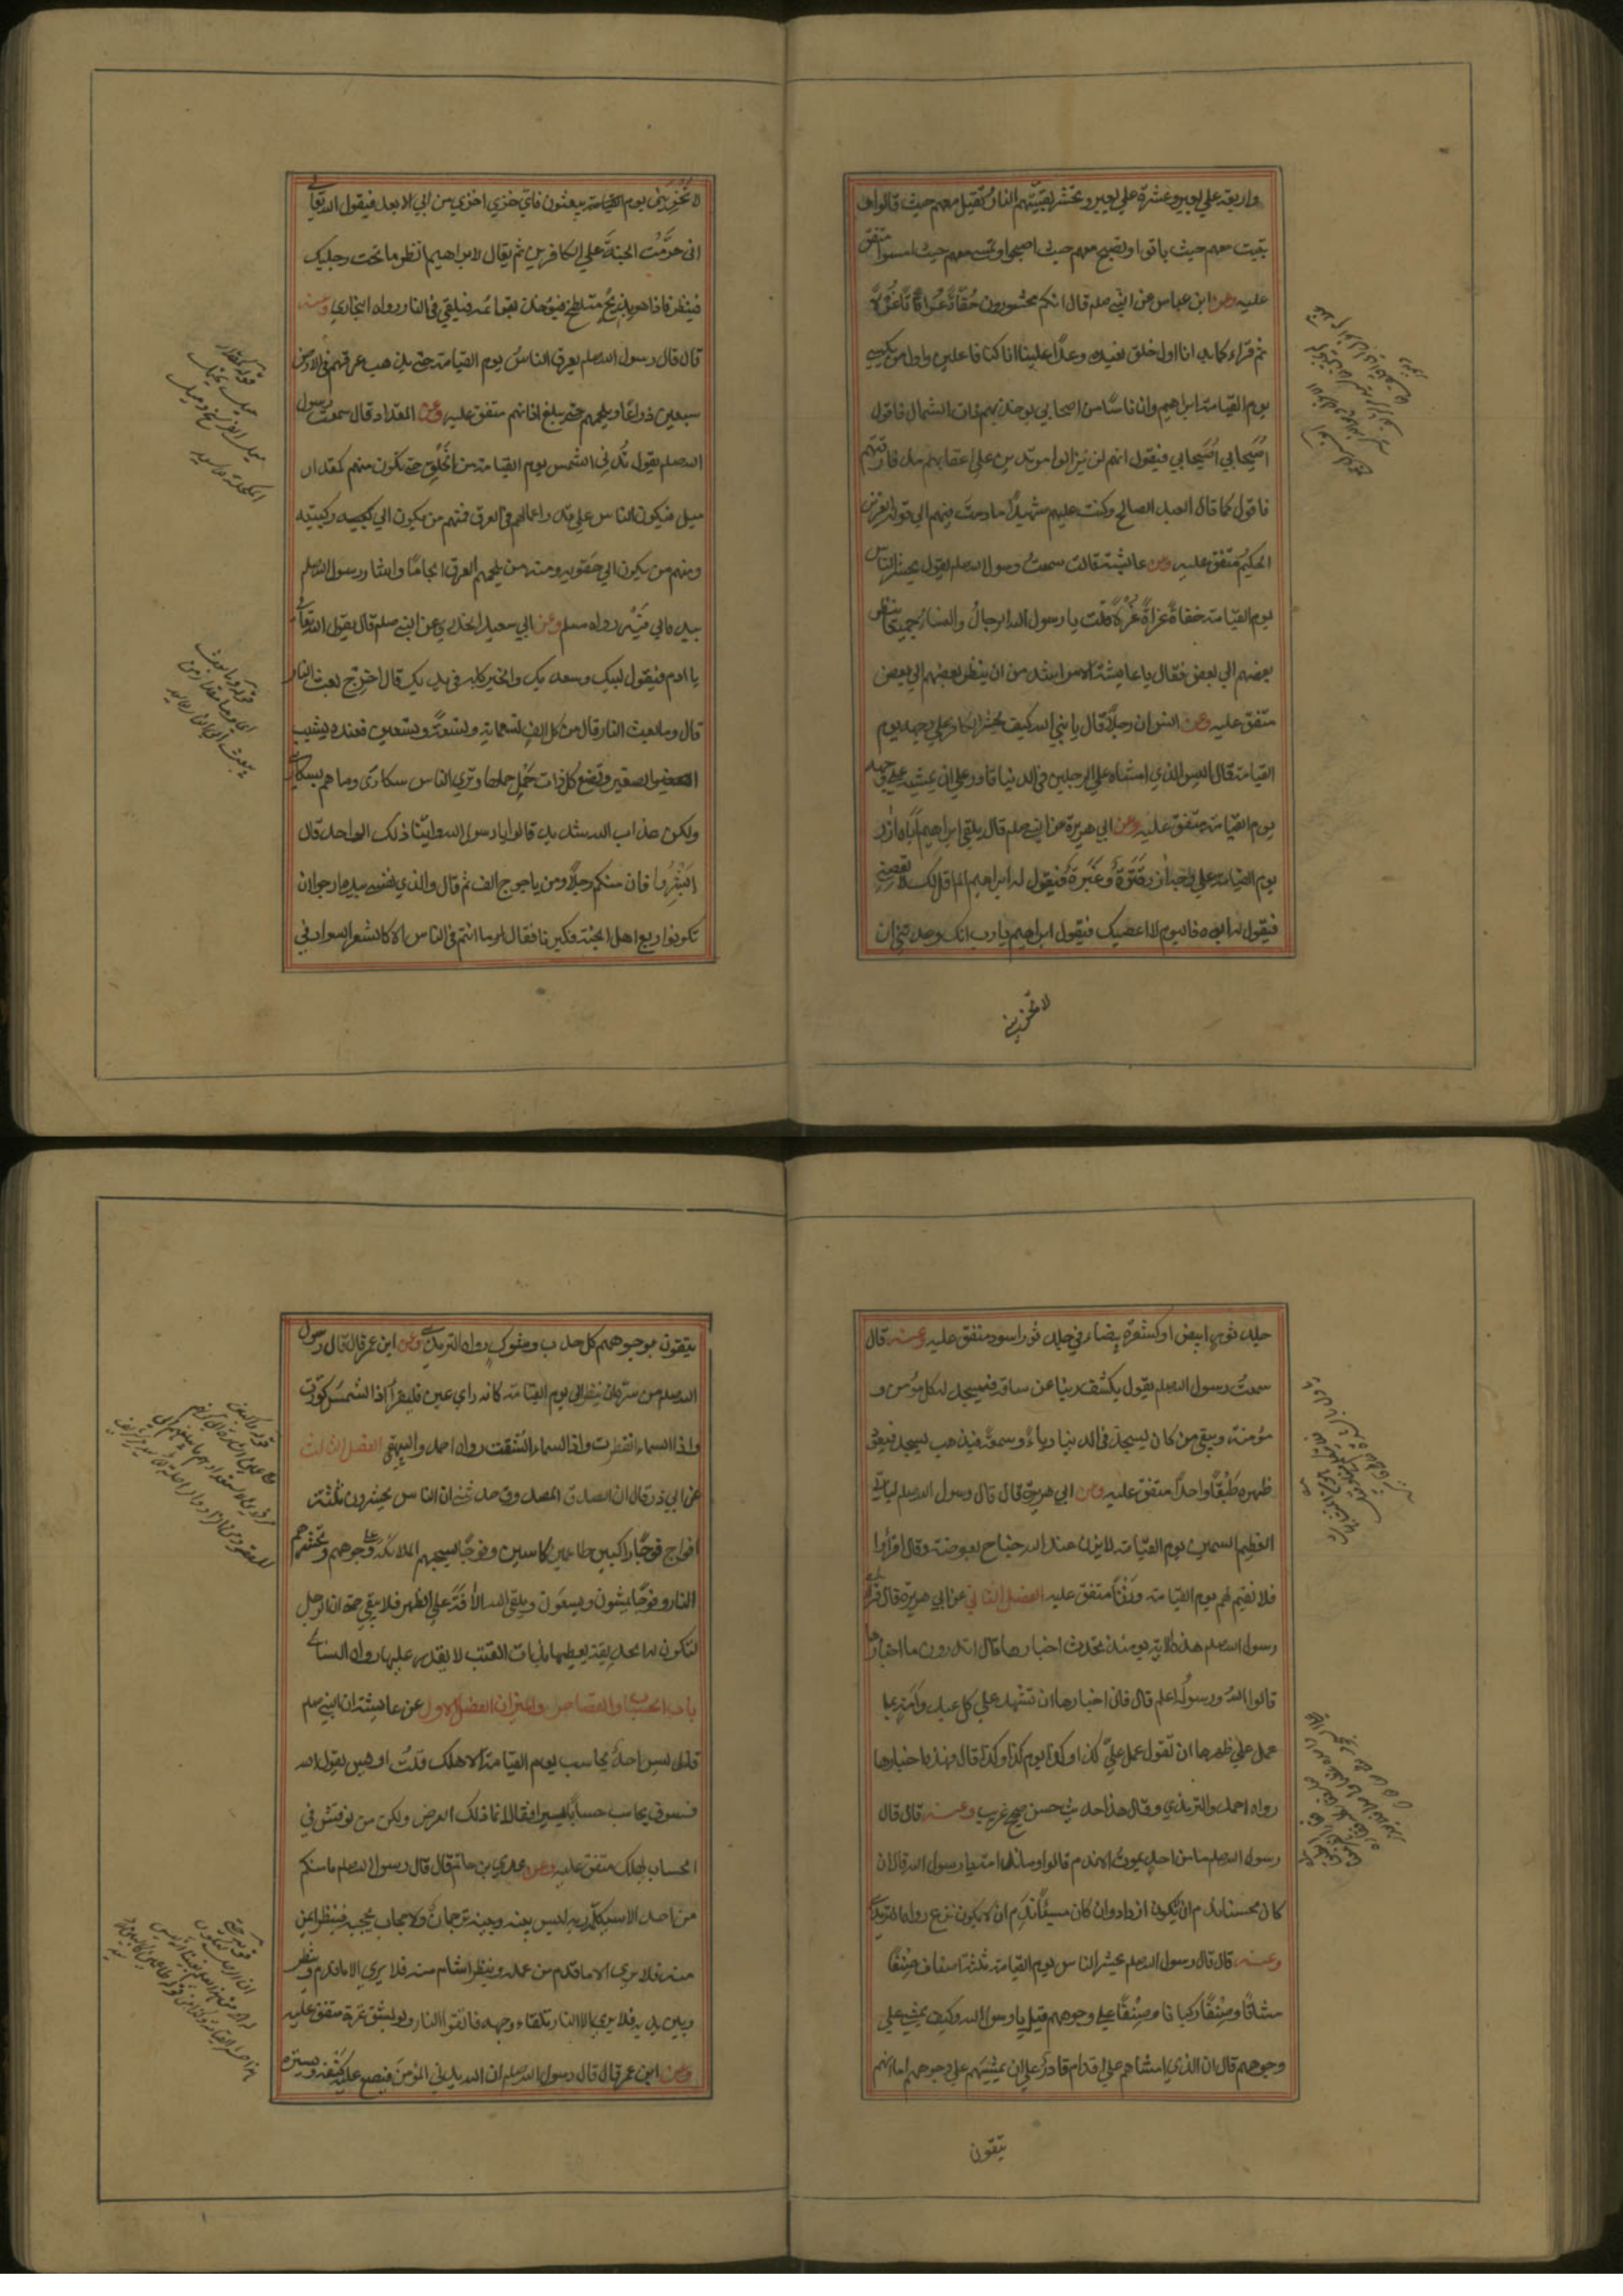 واربعة علي بعير وعشرة علي بعير وتحشر بقيتهم النار تقيل معهم حيث قالوا و
تبيت معهم حيث باتوا وتصبح معهم حيث اصبحوا وتمسي معهم حيث امسوا متفق
عليه وعن ابن عباس عن النبي صلم قال انكم محشورون حُفَاةً عُرَاةً غُرْلًا
ثم قراء كما بدانا اول خلق نعيده وعدًا علينا انا كنا فاعلين واول من يكسي
يوم القيامة ابراهيم وان ناسًا من اصحابي يوخذ بهم ذات الشمال فاقول
اُصَيحابي اُصَيحابي فيقول انهم لن يزالوا مرتدين علي اعقابهم مذ فارقتهم
فاقول كما قال العبد الصالح وكنت عليهم شهيدًا ما دمت فيهم الي قوله العزيز
الحكيم متفق عليه وعن عائشة قالت سمعتُ رسول الله صلم يقول يحشر الناس
يوم القيامة حفاةً عراةً غُرْلًا قلت يا رسول الله الرجالُ والنساء جميعًا ينظر
بعضهم الي بعض فقال يا عايشة الامر اشد من ان ينظر بعضهم الي بعض
متفق عليه وعن انس ان رجلًا قال يا نبي الله كيف يحشر الكافر علي وجهه يوم
القيامة قال اليس الذي امشاه علي الرجلين في الدنيا قادر علي ان يمشيه علي وجهه
يوم القيامة متفق عليه وعن ابي هريرة عن النبي صلم قال يلقي ابراهيم اباه آزر
يوم القيامة علي وجه آزر قَتَرَةٌ وغَبَرَة فيقول له ابراهيم الم اقل لك لا تعصني
فيقول له ابوه فاليوم لا اعصيك فيقول ابراهيم يا رب انك وعدتني ان
لا تخزيني
لا تُخزِيَني يوم القيامة يبعثون فاي خزي اخزي من ابي الابعد فيقول الله تعالي
اني حرَّمْتُ الجنةَ علي الكافرين ثم يقال لابراهيم انظر ما تحت رجليك
فينظر فاذا هو بذيخٍ متلطخ فيوخذ بقوائمه فيلقي في النار رواه البخاري وعنه
قال قال رسول الله صلم يعرق الناسُ يوم القيامة حتي يذهب عرقهم في الارض
سبعين ذراعًا ويلجمهم حتي يبلغ اذانهم متفق عليه وعن المقداد قال سمعت رسول
الله صلم يقول تُدني الشمس يوم القيامة من الخَلْقِ حتي تكون منهم كمقدار
ميل فيكون الناس علي قدر اعمالهم في العرق فمنهم من يكون الي كعبيه ركبتيه
ومنهم من يكون الي حَقويه ومنهم من يلجمهم العرق الجامًا واشار رسول الله صلم
بيده الي فيه رواه مسلم وعن ابي سعيد الخدري عن النبي صلم قال يقول الله تعالي
يا ادم فيقول لبيك وسعديك والخير كله في يديك قال اخرج بعث النار
قال وما بعث النار قال من كل الف تسعماية وتسعةً وتسعين فعنده يشيب
الصغير وتضع كل ذات حَمْل حملها وتري الناس سكاري وما هم بسكاري
ولكن عذاب الله شديد قالوا يا رسول الله واينا ذلك الواحد قال
اَبْشِرُوا فان منكم رجلًا ومن ياجوج الف ثم قال والذي نفسي بيده ارجو ان
تكونوا ربع اهل الجنة فكبرنا فقال ما انتم في الناس الا كالشعر السوداء في
جلد ثور ابيض او كشعرة بيضاء في جلد ثور اسود متفق عليه وعنه قال
سمعتُ رسول الله صلم يقول يكشف ربنا عن ساقه فيسجد له كل مؤمن و
مؤمنة ويبقي من كان يسجد في الدنيا رياءً وسمعةً فيذهب ليسجد فيعود
ظهره طَبْقًا واحدًا متفق عليه وعن ابي هريرة قال قال رسول الله صلم لياتي
العظيم السمين يوم القيامة لا يزن عند الله جناح بعوضة وقال اقرأوا
فلا نقيم لهم يوم القيامة وَزْنًا متفق عليه الفصل الثاني عن ابي هريرة قال قرأ
رسول الله صلم هذه الاية يومئذ تحدث اخبارها قال اتدرون ما اخبارها
قالوا اللهُ ورسولُه اعلم قال فان اخبارها ان تشهد علي كل عبد وامة بما
عمل علي ظهرها ان تقول عمل عليَّ كذا وكذا يوم كذا وكذا قال فهذه اخبارها
رواه احمد والترمذي وقال هذا حديث حسن صحيح غريب وعنه قال قال
رسول الله صلم ما من احدٍ يموت الا ندم قالوا وما ندامته يا رسول الله قال ان
كان محسنا ندم ان لا يكون ازداد وان كان مسيئًا ندم ان لا يكون نزع رواه الترمذي
وعنه قال قال رسول الله صلم يحشر الناس يوم القيامة ثلثة اصناف صِنْفًا
مشاةً وصِنْفًا ركبانا وصِنْفًا علي وجوههم قيل يا رسول الله وكيف يمشي علي
وجوههم قال ان الذي امشاهم علي اقدام قادرٌ علي ان يمشيهم علي وجوههم اما انهم
يتقون
يتقون بوجوههم كل حدب وشوك رواه الترمذي وعن ابن عمر قال قال رسول
الله صلم من سرَّه ان ينظر الي يوم القيامة كانه راي عين فليقرأ اذا الشمس كوّرت
واذا السماء انفطرت واذا السماء انشقت رواه احمد والبيهقي الفصل الثالث
عن ابي ذر قال ان الصادق المصدوق حدثني ان الناس يحشرون ثلثة
افواج فوجًا راكبين طاعمين كاسين وفوجًا يسحبهم الملائكة علي وجوههم وتحشرهم
النار وفوجًا يمشون ويسعَون ويلقي الله الآفةَ علي الظهر فلا يبقي حتي ان الرجل
لتكون له الحديقة يعطيها بذات القتب لا يقدر عليها رواه النسائي
باب الحساب والقصاص والميزان الفصل الاول عن عايشة ان النبي صلم
قال ليس احدٌ يحاسب يوم القيامة الا هلك قلتُ او ليس يقول الله
فسوف يحاسب حسابًا يسيرا فقال انما ذلك العرض ولكن من نوقش في
الحساب يهلك متفق عليه وعن عدي بن حاتم قال قال رسول الله صلم ما منكم
من احد الا سيكلّمه ربه ليس بينه وبينه ترجمانٌ ولا حجاب يحجبه فينظر ايمن
منه فلا يري الا ما قدم من عمله وينظر اشام منه فلا يري الا ما قدم وينظر
وبين يديه فلا يري الا النار تلقاء وجهه فاتقوا النار ولو بشق تمرة متفق عليه
وعن ابن عمر قال قال رسول الله صلم ان الله يدني المؤمن فيضع عليه كَنَفَه ويستره